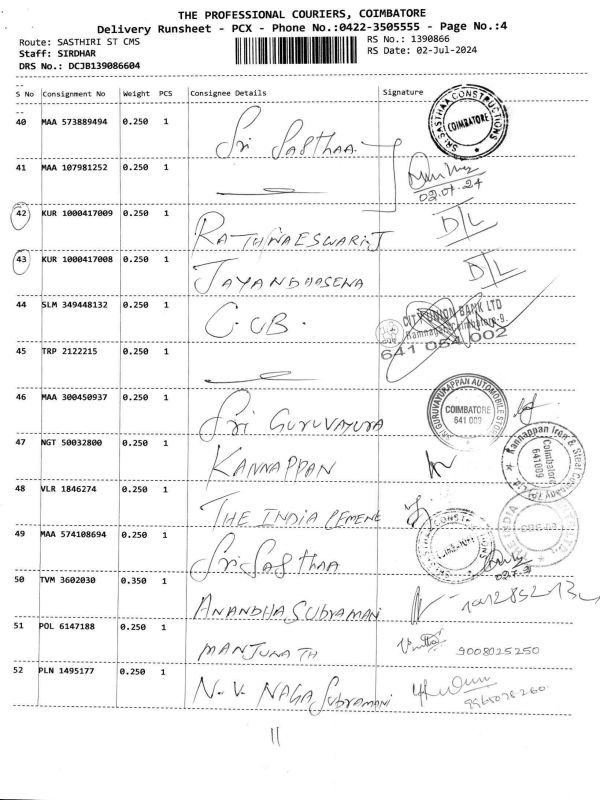 THE PROFESSIONAL COURIERS, COIMBATORE
Delivery Runsheet - PCX - Phone No.:0422-3505555 - Page No.:4
Route: SASTHIRI ST CMS RS No.: 1390866
Staff: SIRDHAR RS Date: 02-Jul-2024
DRS No.: DCJB139086604
S No Consignment No Weight PCS Consignee Details Signature
40 MAA 573889494 0.250 1 Sri Sasthaa SRI SASTHAA CONSTRUCTIONS COIMBATORE
41 MAA 107981252 0.250 1 02.07.24
42 KUR 1000417009 0.250 1 RATHINAESWARI.J D/L
43 KUR 1000417008 0.250 1 JAYANDHASENA D/L
44 SLM 349448132 0.250 1 C.U.B. CITY UNION BANK LTD Ramnagar, Coimbatore-9. 641 054 002
45 TRP 2122215 0.250 1
46 MAA 300450937 0.250 1 Sri GURUVAYURA SRI GURUVAYURAPPAN AUTOMOBILE STORES COIMBATORE 641 009
47 NGT 50032800 0.250 1 KANNAPPAN Kannappan Iron & Steel Company Coimbatore 641009
48 VLR 1846274 0.250 1 THE INDIA CEMENE THE INDIA
49 MAA 574108694 0.250 1 Sri Sasthaa
50 TVM 3602030 0.350 1 ANANDHA SUBRAMANI
51 POL 6147188 0.250 1 MANJUNATH 9008025250
52 PLN 1495177 0.250 1 N.V. NAGA SUBRAMANI
11